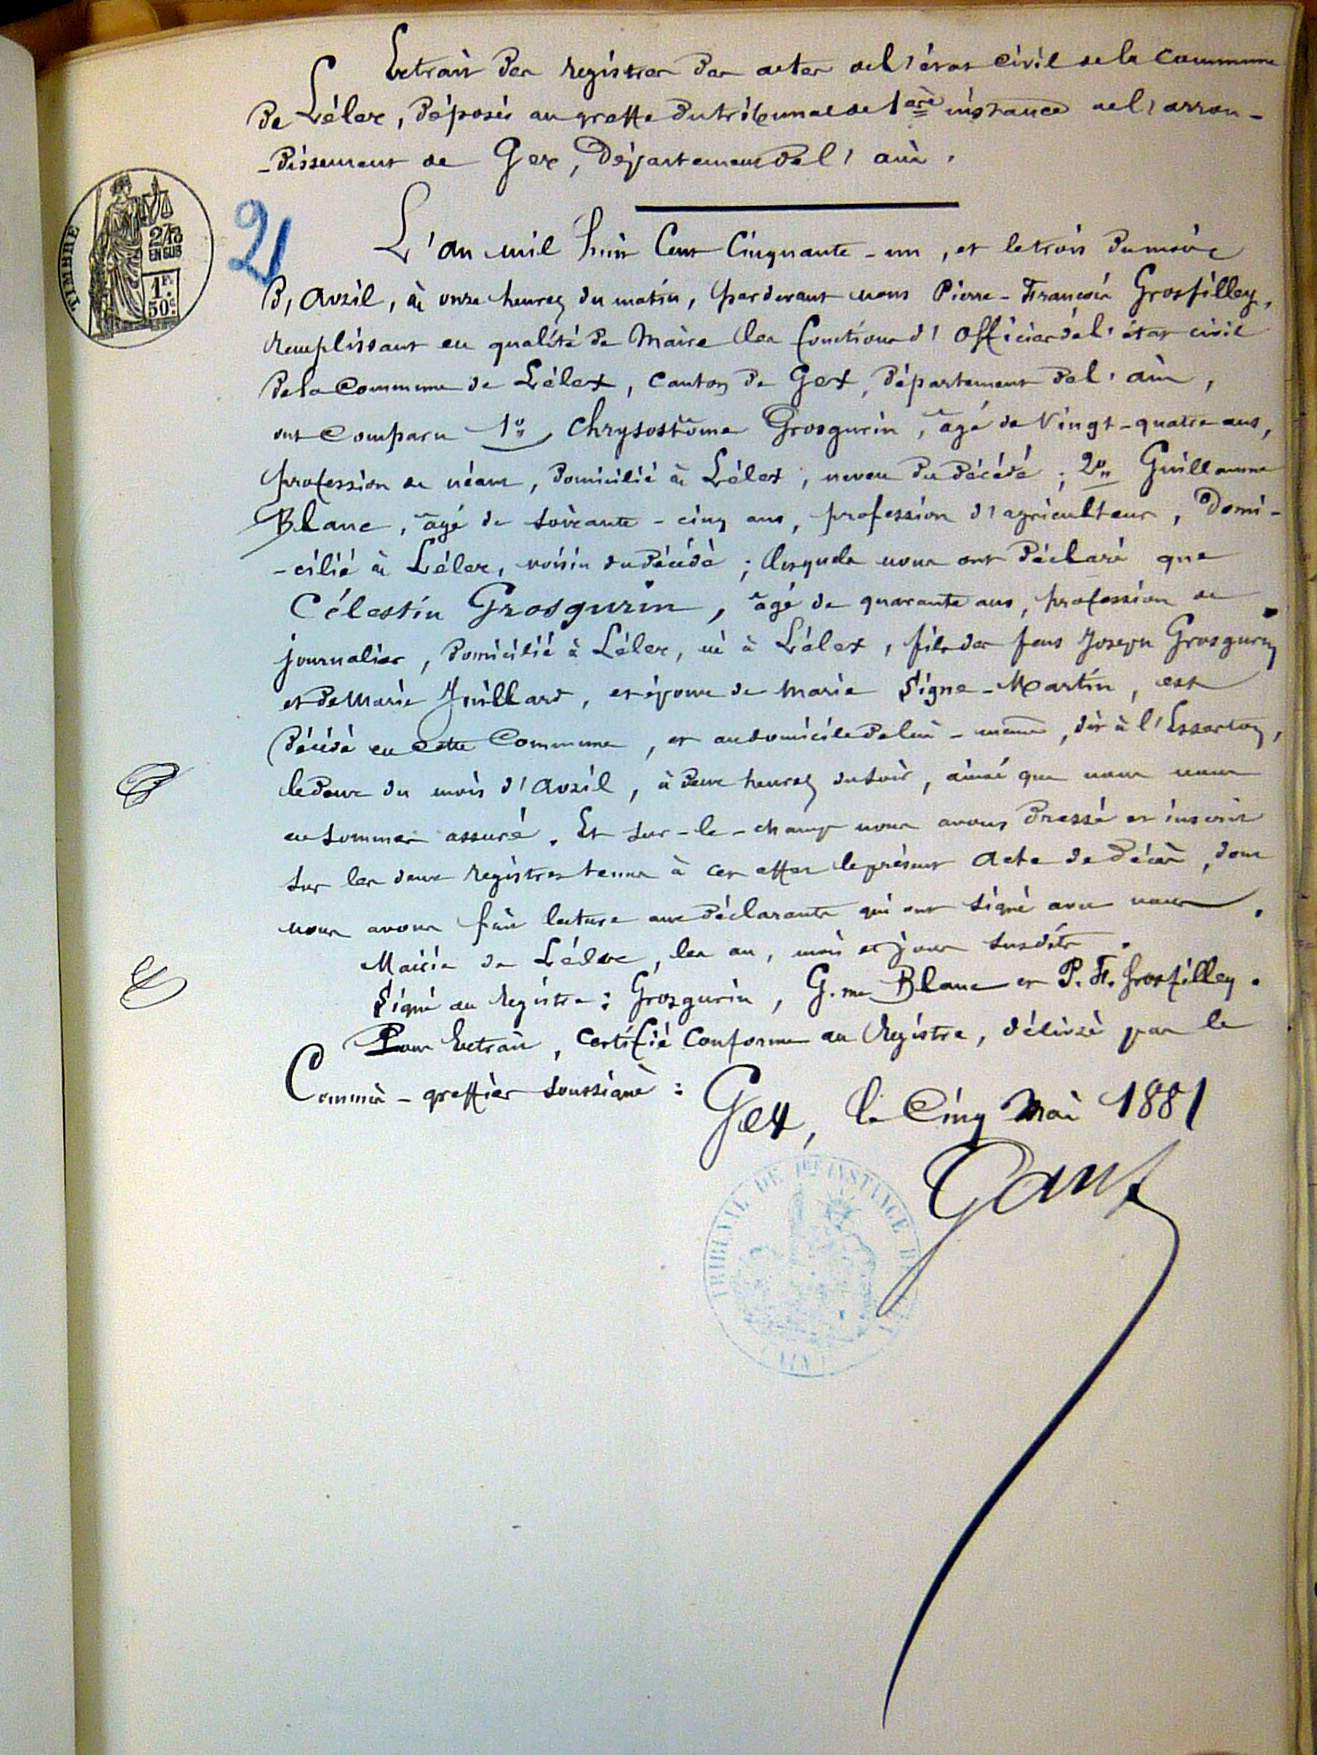 Extrait des registres des actes de l'état civil de la commune
de Lélex, déposés au greffe du tribunal de 1ère instance de l'arron-
-dissement de Gex, Département de l'ain.
TIMBRE
2/10
EN SUS
1F.
50c.
2
L'an mil huit Cent Cinquante-un, et le trois du mois
d'avril, à onze heures du matin, pardevant nous Pierre-François Grosfilley,
remplissant en qualité de Maire les fonctions d'Officier de l'état civil
de la Commune de Lélex, canton de Gex, département de l'ain,
ont comparu 1o Chrysostôme Grosgurin, âgé de Vingt-quatre ans,
profession de néant, domicilié à Lélex, neveu du décédé; 2o Guillaume
Blanc, âgé de soixante-cinq ans, profession d'agriculteur, Domi-
-cilié à Lélex, voisin du décédé; lesquels nous ont déclaré que
Célestin Grosgurin, âgé de quarante ans, profession de
journalier, domicilié à Lélex, né à Lélex, fils des feus Joseph Grosgurin
et de Marie Juillard, et époux de Marie Signe-Martin, est
décédé en cette Commune, et au domicile de lui-même, dit à l'Essarton,
le deux du mois d'avril, à deux heures du soir, ainsi que nous nous
en sommes assuré. Et sur-le-champ nous avons dressé et inscrit
sur les deux registres tenus à cet effet le présent acte de décès, dont
nous avons fait lecture aux déclarants qui ont signé avec nous.
Mairie de Lélex, les an, mois et jour susdits.
Signé au registre: Grosgurin, G.me Blanc et P. F. Grosfilley.
Pour Extrait, certifié conforme au Registre, délivré par le
Commis-greffier soussigné:
Gex, le Cinq Mai 1881
TRIBUNAL DE 1RE INSTANCE DE
AIN